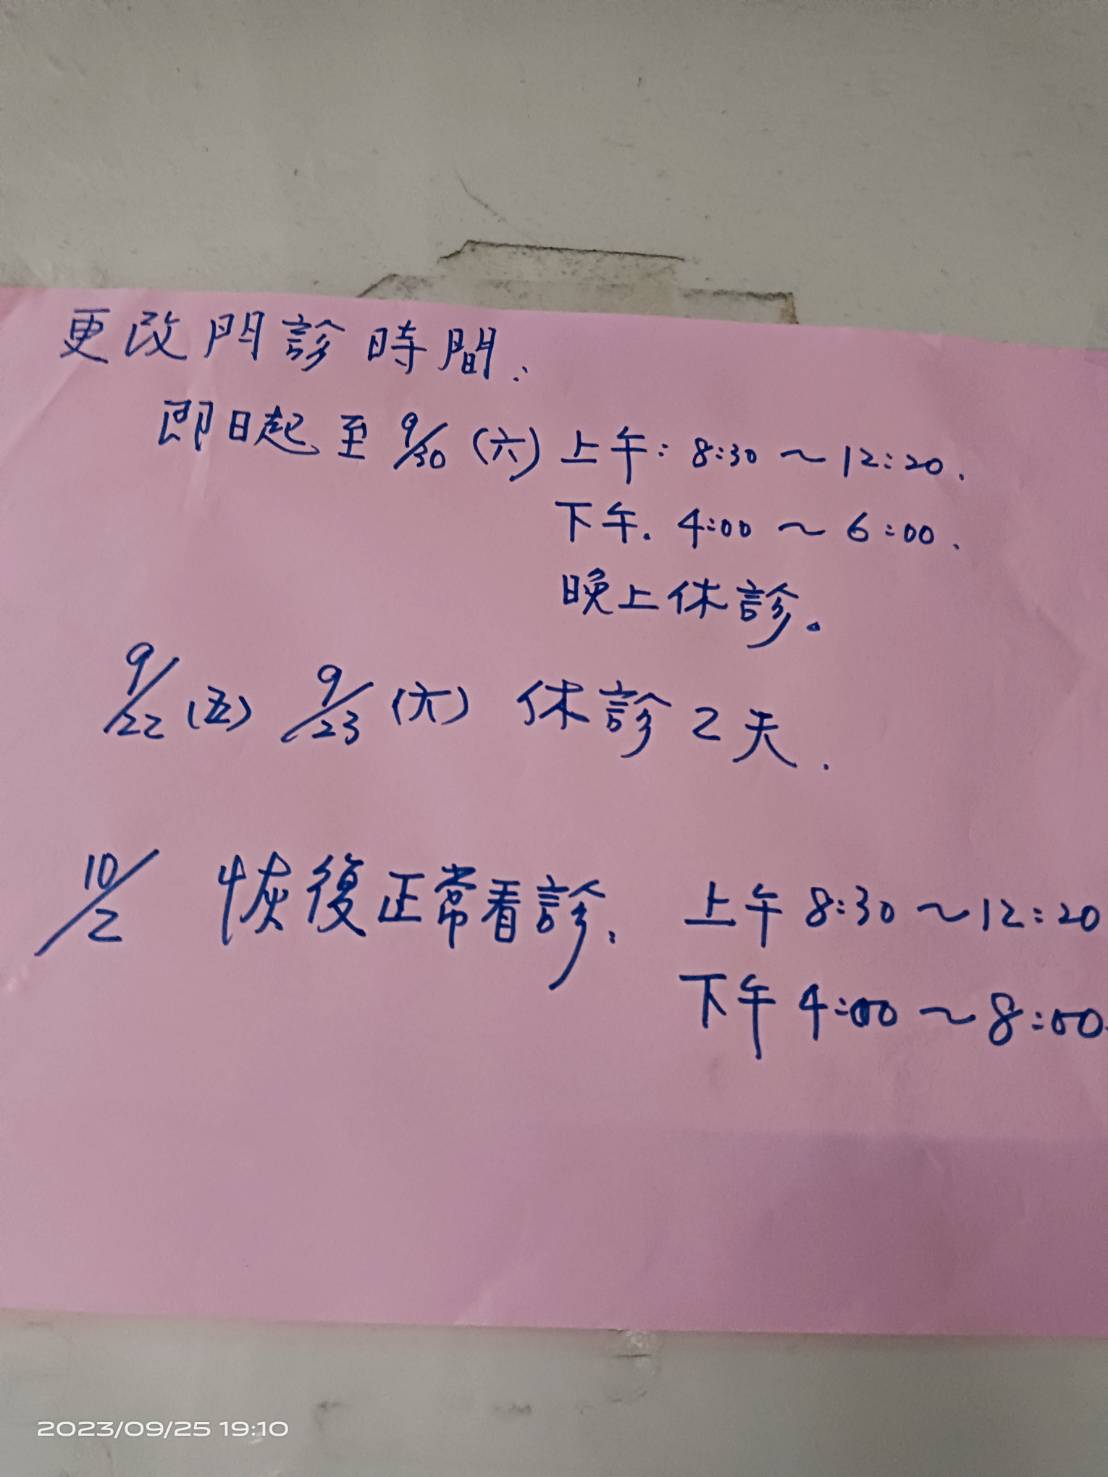 更改門診時間:
即日起至 9/30 (六) 上午: 8:30 ~ 12:20.
下午. 4:00 ~ 6:00.
晚上休診。
9/22 (五) 9/23 (六) 休診 2天.
10/2 恢復正常看診: 上午 8:30 ~ 12:20
下午 4:00 ~ 8:00.
2023/09/25 19:10